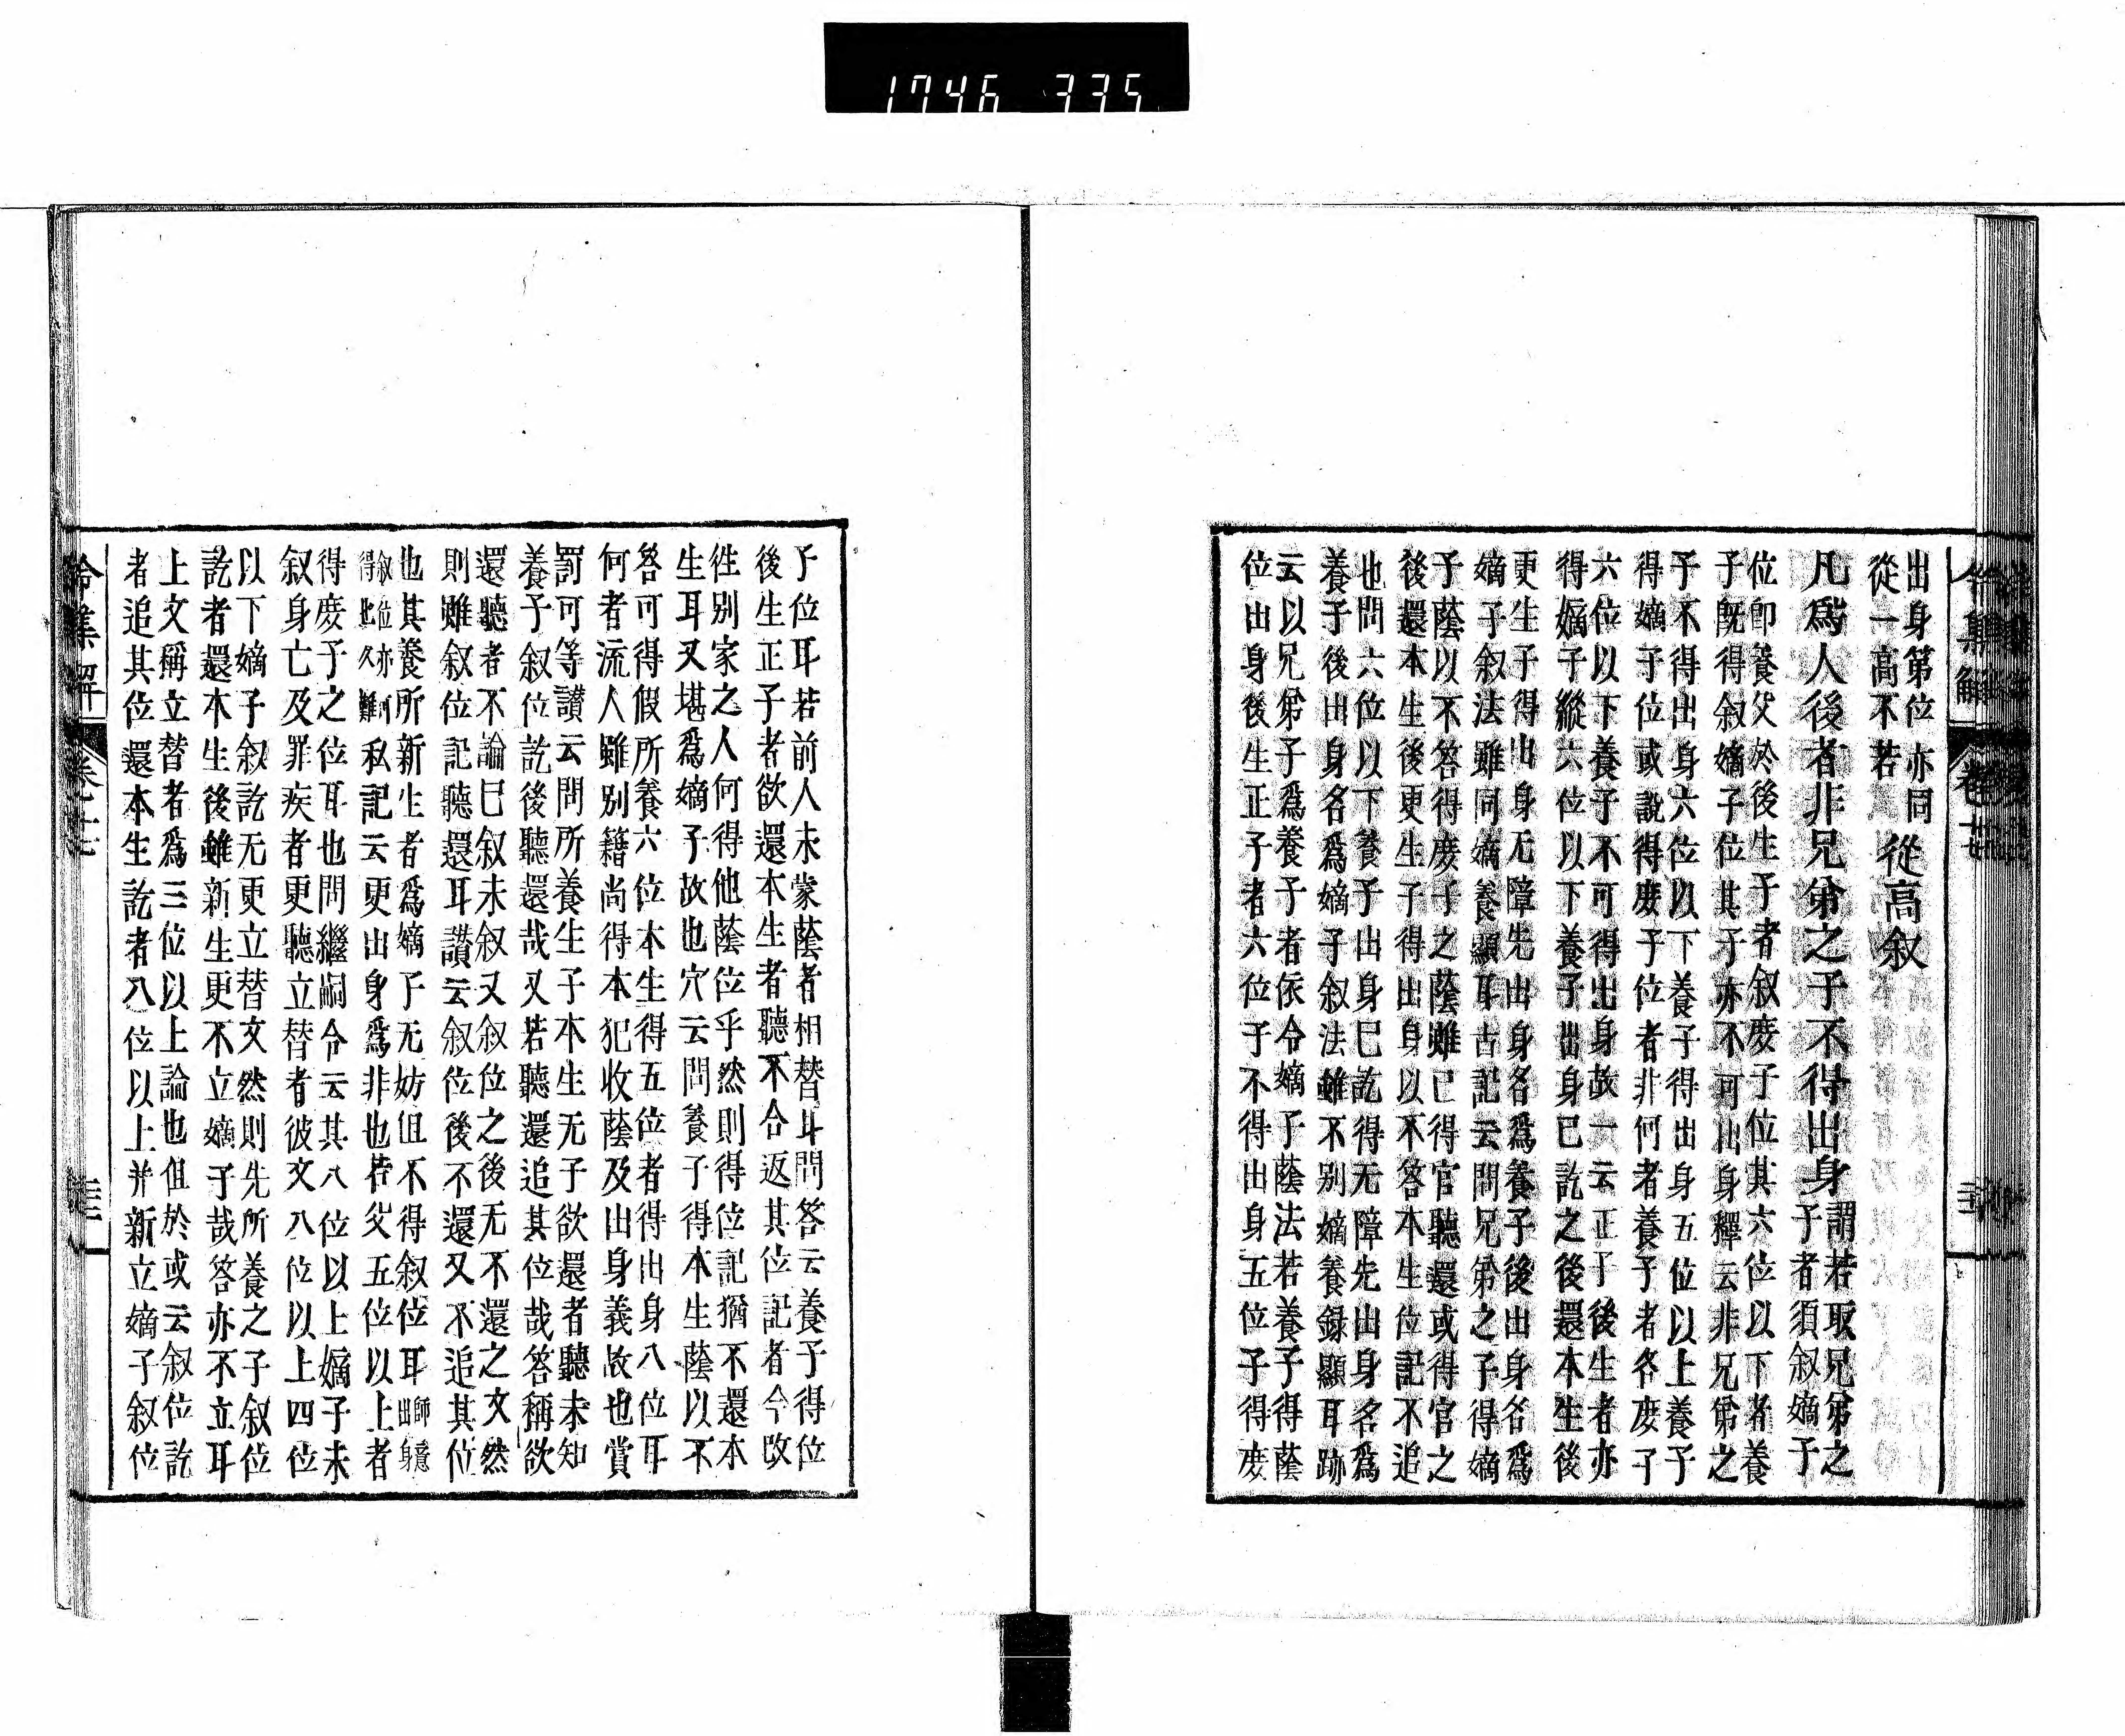 1746 335
出身第位亦同
從一高不若
從高叙
凡爲人後者非兄弟之子不得出身
謂若取兄弟之
子者須叙嫡子
位卽養父於後生子者叙庶子位其六位以下者養
子既得叙嫡子位其子亦不可出身釋云非兄弟之
子不得出身六位以下養子得出身五位以上養子
得嫡子位或說得庶子位者非何者養子者各庶子
六位以下養子不可得出身故一云正子後生者亦
得嫡子縱六位以下養子出身已訖之後還本生後
更生子得出身无障先出身名爲養子後出身名爲
嫡子叙法雖同嫡養顯耳古記云問兄弟之子得嫡
子蔭以不答得庶子之蔭雖已得官聽還或得官之
後還本生後更生子得出身以不答本生位記不追
也問六位以下養子出身已訖得无障先出身名爲
養子後出身名爲嫡子叙法雖不別嫡養錄顯耳跡
云以兄弟子爲養子者依令嫡子蔭法若養子得蔭
位出身後生正子者六位子不得出身五位子得庶
令集解 卷十七
子位耳若前人未蒙蔭者相替耳問答云養子得位
後生正子者欲還本生者聽不合返其位記者今改
往別家之人何得他蔭位乎然則得位記猶不還本
生耳又堪爲嫡子故也穴云問養子得本生蔭以不
答可得假所養六位本生得五位者得出身八位耳
何者流人雖別籍尚得本犯收蔭及出身義故也賞
罰可等讃云問所養生子本生无子欲還者聽未知
養子叙位訖後聽還哉又若聽還追其位哉答稱欲
還聽者不論已叙未叙又叙位之後无不還之文然
則雖叙位記聽還耳讃云叙位後不還又不追其位
也其養所新生者爲嫡子无妨但不得叙位耳
師意
出身
叙位亦
得此久難
私記云更出身爲非也若父五位以上者
得庶子之位耳也問繼嗣令云其八位以上嫡子未
叙身亡及罪疾者更聽立替者彼文八位以上四位
以下嫡子叙訖无更立替文然則先所養之子叙位
訖者還本生後雖新生更不立嫡子哉答亦不立耳
上文稱立替者爲三位以上論也但於或云叙位訖
者追其位還本生訖者八位以上并新立嫡子叙位
令集解 卷十七